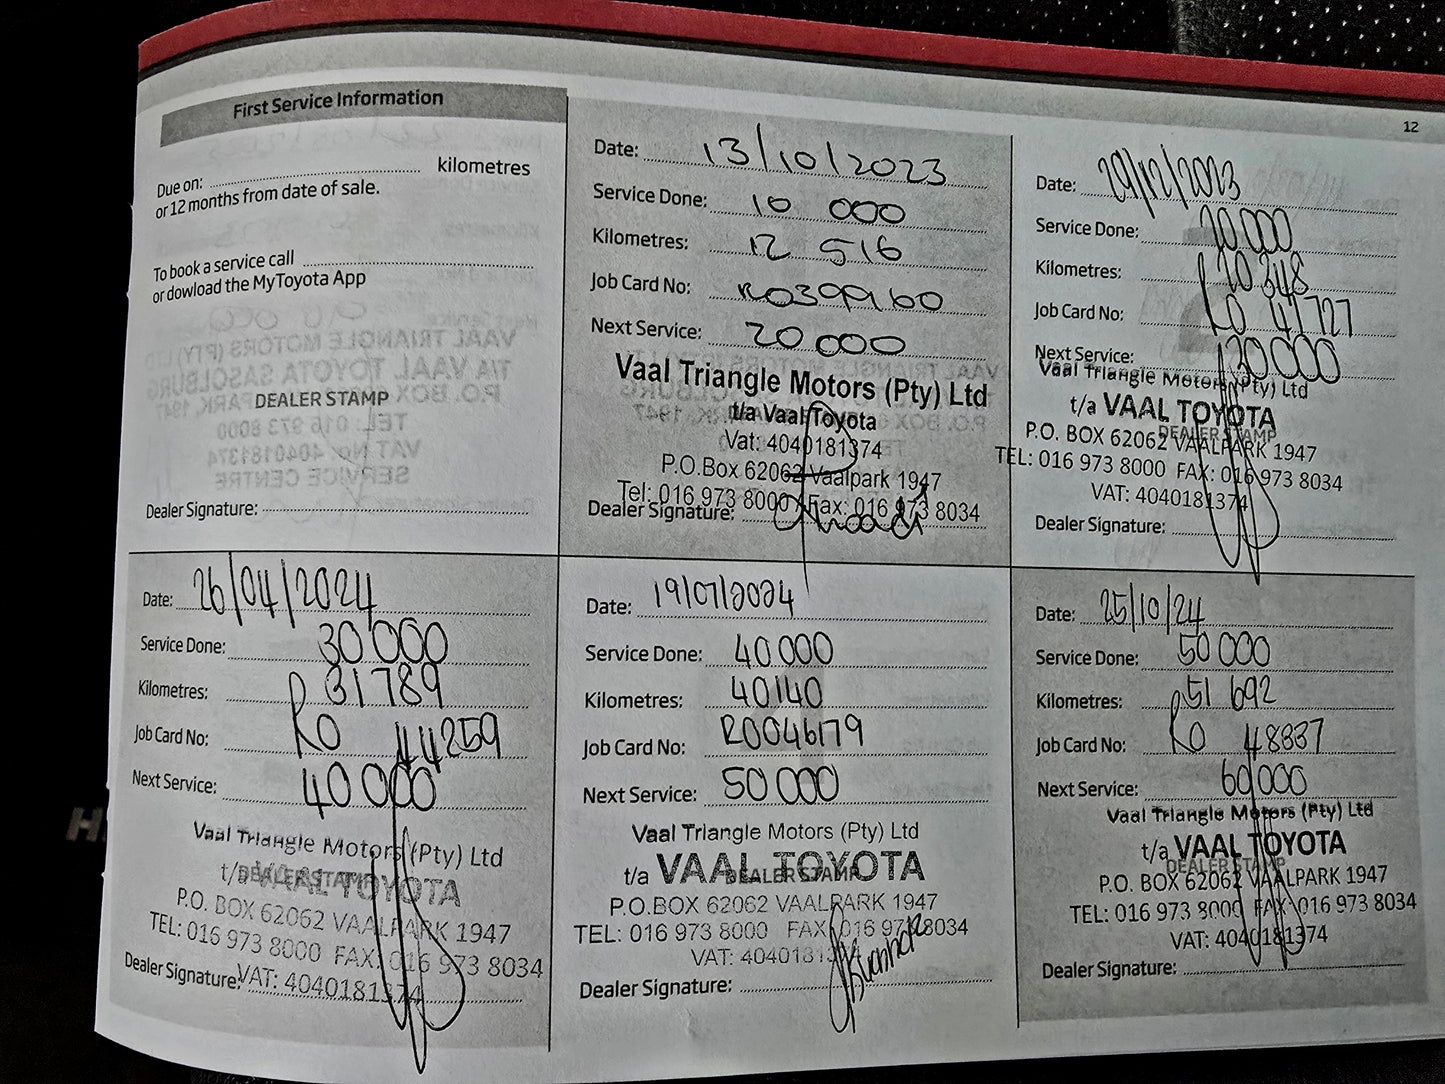 12
First Service Information
Due on: kilometres
or 12 months from date of sale.
To book a service call
or dowload the MyToyota App
DEALER STAMP
Dealer Signature:
Date: 13/10/2023
Service Done: 10 000
Kilometres: 12 516
Job Card No: R0399160
Next Service: 20 000
Vaal Triangle Motors (Pty) Ltd
t/a Vaal Toyota
Vat: 4040181374
P.O.Box 62062 Vaalpark 1947
Tel: 016 973 8000 / Fax: 016 973 8034
Dealer Signature:
Date: 29/12/2023
Service Done: 20 000
Kilometres: 20 348
Job Card No: R0 41727
Next Service: 30 000
Vaal Triangle Motors (Pty) Ltd
t/a VAAL TOYOTA
DEALER STAMP
P.O. BOX 62062 VAALPARK 1947
TEL: 016 973 8000 FAX: 016 973 8034
VAT: 4040181374
Dealer Signature:
Date: 26/04/2024
Service Done: 30 000
Kilometres: 31789
Job Card No: R0 44259
Next Service: 40 000
Vaal Triangle Motors (Pty) Ltd
t/a VAAL TOYOTA
DEALER STAMP
P.O. BOX 62062 VAALPARK 1947
TEL: 016 973 8000 FAX: 016 973 8034
VAT: 4040181374
Dealer Signature:
Date: 19/07/2024
Service Done: 40 000
Kilometres: 40140
Job Card No: R0046179
Next Service: 50 000
Vaal Triangle Motors (Pty) Ltd
t/a VAAL TOYOTA
DEALER STAMP
P.O.BOX 62062 VAALPARK 1947
TEL: 016 973 8000 FAX: 016 973 8034
VAT: 4040181374
Dealer Signature:
Date: 25/10/24
Service Done: 50 000
Kilometres: 51 692
Job Card No: R0 48837
Next Service: 60 000
Vaal Triangle Motors (Pty) Ltd
t/a VAAL TOYOTA
DEALER STAMP
P.O. BOX 62062 VAALPARK 1947
TEL: 016 973 8000 FAX: 016 973 8034
VAT: 4040181374
Dealer Signature: